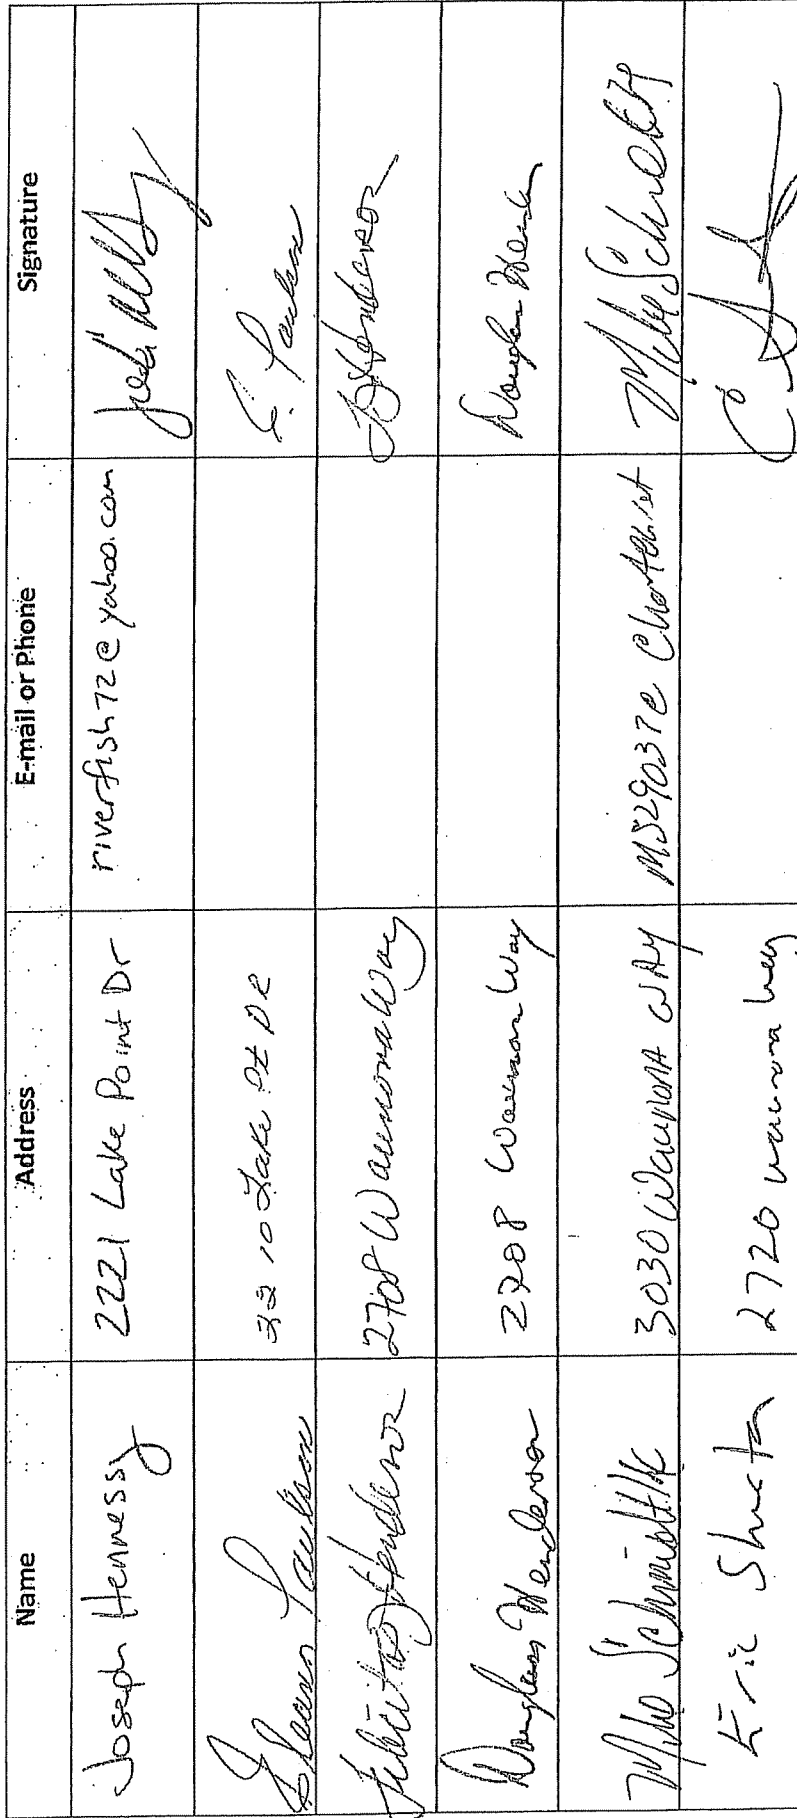 Name Address E-mail or Phone Signature
Joseph Hennessy 2221 Lake Point Dr riverfish72@yahoo.com
Paulson 2210 Lake Pt DR E. Paulson
Felicitas Henderson 2708 Waunona Way Henderson
Douglas Henderson 2708 Waunona Way Douglas
Mike Schmidtke 3030 Waunona WAY MS29037@ Mike
Eric 2720 waunona way